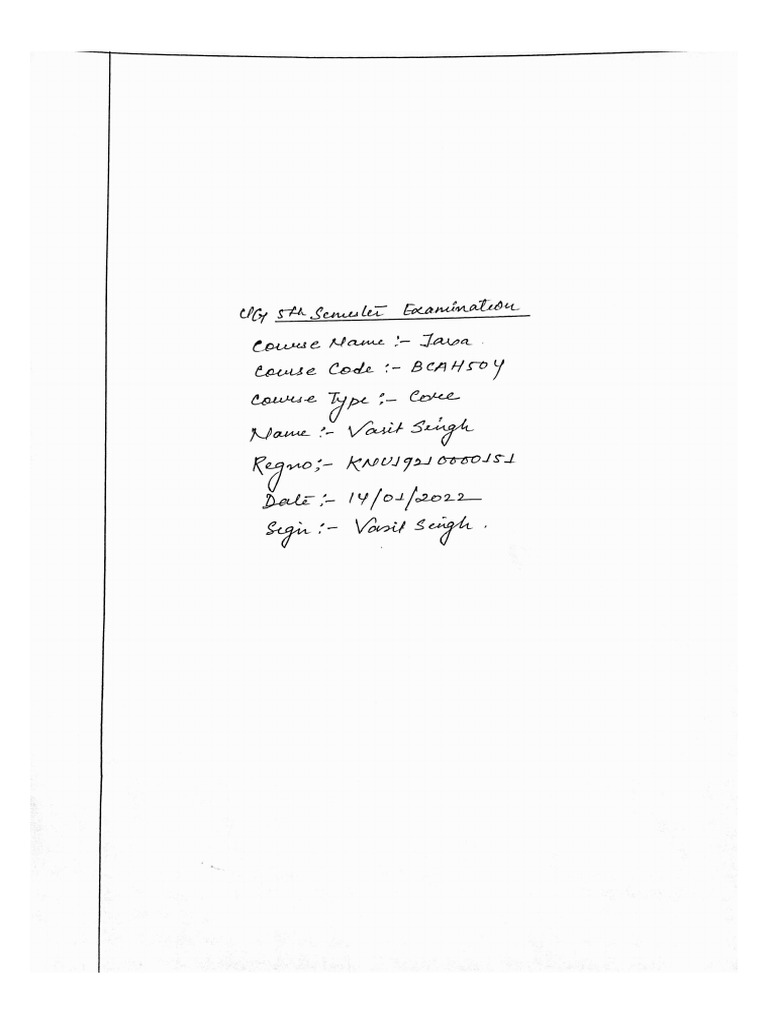 UG 5th Semester Examination
Course Name :- Java.
Course Code :- BCAH504
Course Type :- Core
Name :- Vasit Singh
Regno :- KNU19210000151
Date :- 14/01/2022
Sign :- Vasit Singh.